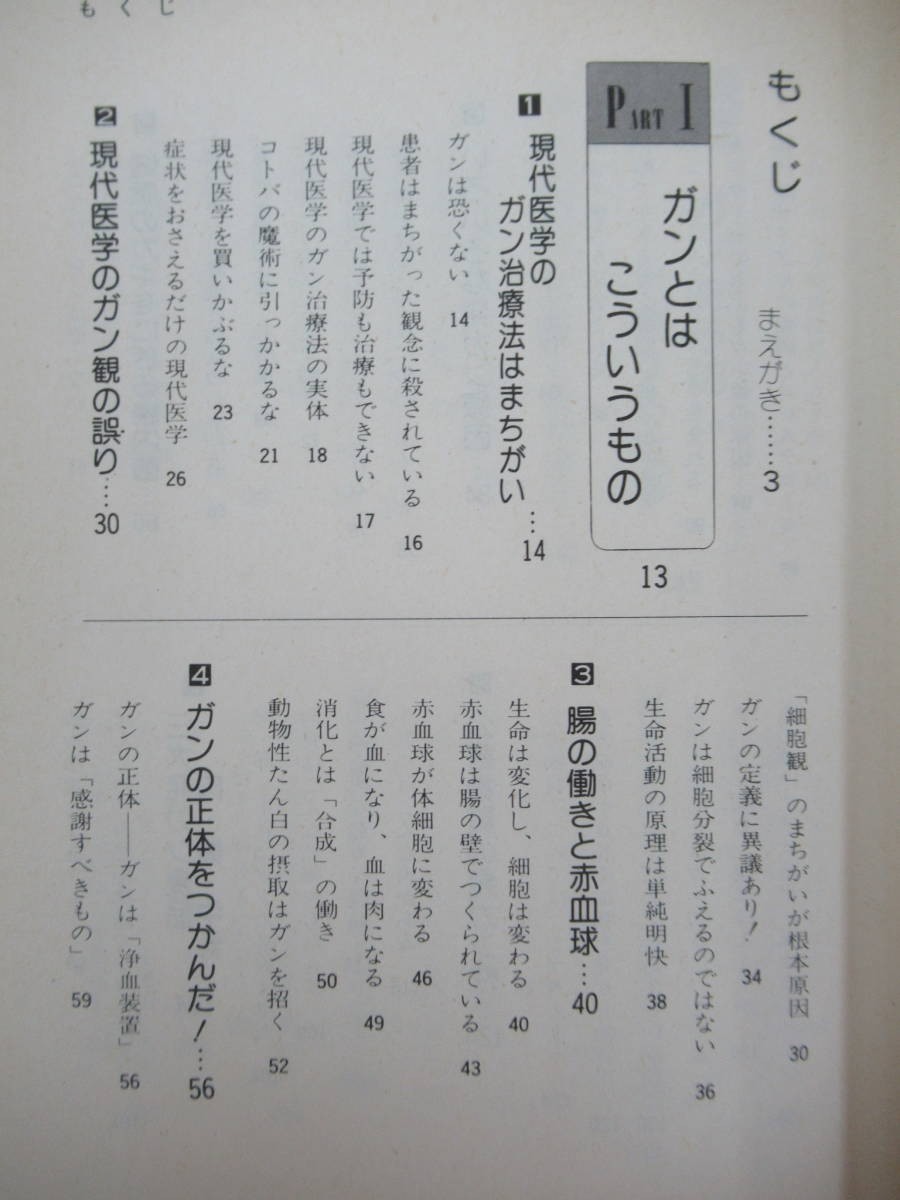 もくじ
もくじ
まえがき……3
PART I
ガンとは
こういうもの
13
1 現代医学の
ガン治療法はまちがい…14
ガンは恐くない 14
患者はまちがった観念に殺されている 16
現代医学では予防も治療もできない 17
現代医学のガン治療法の実体 18
コトバの魔術に引っかかるな 21
現代医学を買いかぶるな 23
症状をおさえるだけの現代医学 26
2 現代医学のガン観の誤り……30
「細胞観」のまちがいが根本原因 30
ガンの定義に異議あり! 34
ガンは細胞分裂でふえるのではない 36
生命活動の原理は単純明快 38
3 腸の働きと赤血球…40
生命は変化し、細胞は変わる 40
赤血球は腸の壁でつくられている 43
赤血球が体細胞に変わる 46
食が血になり、血は肉になる 49
消化とは「合成」の働き 50
動物性たん白の摂取はガンを招く 52
4 ガンの正体をつかんだ!…56
ガンの正体――ガンは「浄血装置」 56
ガンは「感謝すべきもの」 59